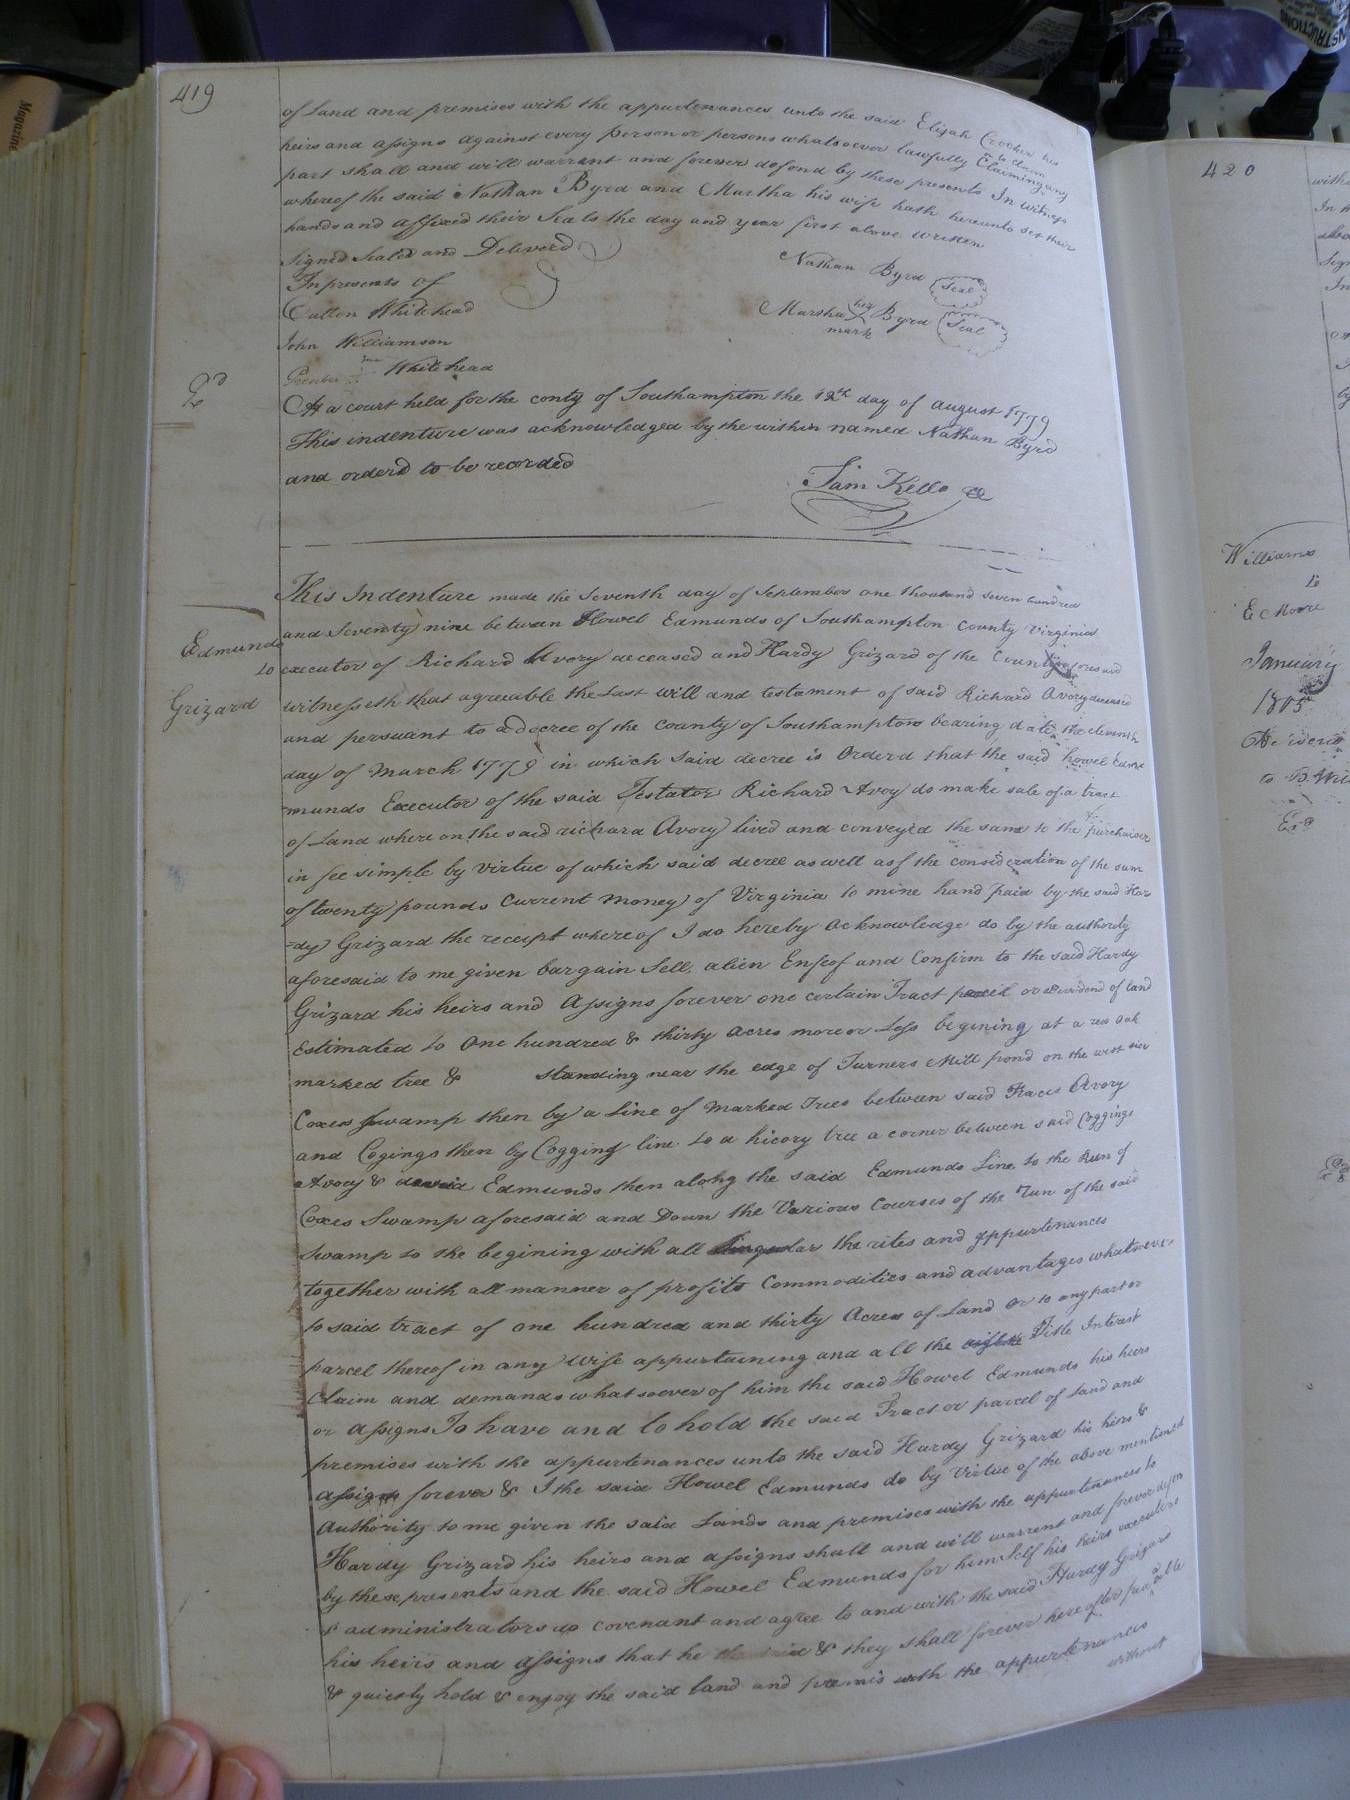 419
of Land and premises with the appurtenances unto the said Elijah Crocker his
heirs and assigns against every person or persons whatsoever lawfully Claiming any
to claim
part shall and will warrant and forever defend by these presents In witness
whereof the said Nathan Byrd and Martha his wife hath hereunto set their
hands and affixed their Seals the day and year first above written
Signed Sealed and Deliverd
In presents of
Nathan Byrd Seal
Cutten Whitehead
Marsha her mark Byrd Seal
John Williamson
Whitehead
Ed
At a court held for the conty of Southampton the 12th day of august 1779
This indenture was acknowledged by the within named Nathan Byrd
and orderd to be recorded
Sam Kello
Edmunds
to
Grizard
This Indenture made the Seventh day of September one thousand seven hundred
and Seventy nine between Howel Edmunds of Southampton County Virginia
executor of Richard Avory deceased and Hardy Grizard of the County aforesaid
witnesseth that agreeable the Last will and testament of said Richard Avory deceased
and persuant to a decree of the county of Southampton bearing date the eleventh
day of March 1779 in which said decree is Orderd that the said howel Edmu
munds Executor of the said Testator Richard Avoy do make sale of a tract
of Land where on the said richard Avory lived and conveyed the same to the purchaiser
in fee simple by virtue of which said decree as well as of the consideration of the sum
of twenty pounds Current Money of Virginia to mine hand paid by the said Har
-dy Grizard the receipt whereof I do hereby acknowledge do by the authority
aforesaid to me given bargain Sell, alien Enfeof and Confirm to the said Hardy
Grizard his heirs and Assigns forever one certain Tract parcel or dividend of land
Estimated to One hundred & thirty acres more or Less begining at a red oak
marked tree & standing near the edge of Turners Mill pond on the west side
Coxes Swamp then by a Line of Marked Trees between said Avory
and Cogings then by Cogging line to a hicory tree a corner between said Coggings
Avory & david Edmunds then along the said Edmunds Line to the Run of
Coxes Swamp aforesaid and Down the Various Courses of the Run of the said
Swamp to the begining with all Singular the rites and appurtenances
together with all manner of profits Commodities and advantages whatsoever
to said tract of one hundred and thirty Acres of Land or to any part or
parcel thereof in any wise appurtaining and all the Title Interest
Claim and demands whatsoever of him the said Howel Edmunds his heirs
or assigns To have and to hold the said Tract or parcel of Land and
premises with the appurtenances unto the said Hardy Grizard his heirs &
assigns forever & I the said Howel Edmunds do by Virtue of the above mentioned
Authority to me given the said Lands and premises with the appurtenances to
Hardy Grizard his heirs and assigns shall and will warrent and forever defen
by these presents and the said Howel Edmunds for himself his heirs executors
& administrators do covenant and agree to and with the said Hardy Grizard
his heirs and assigns that he & they shall forever here after peacable
& quietly hold & enjoy the said land and premis with the appurtenances
without
420
Williams
to
E Moore
January
1805